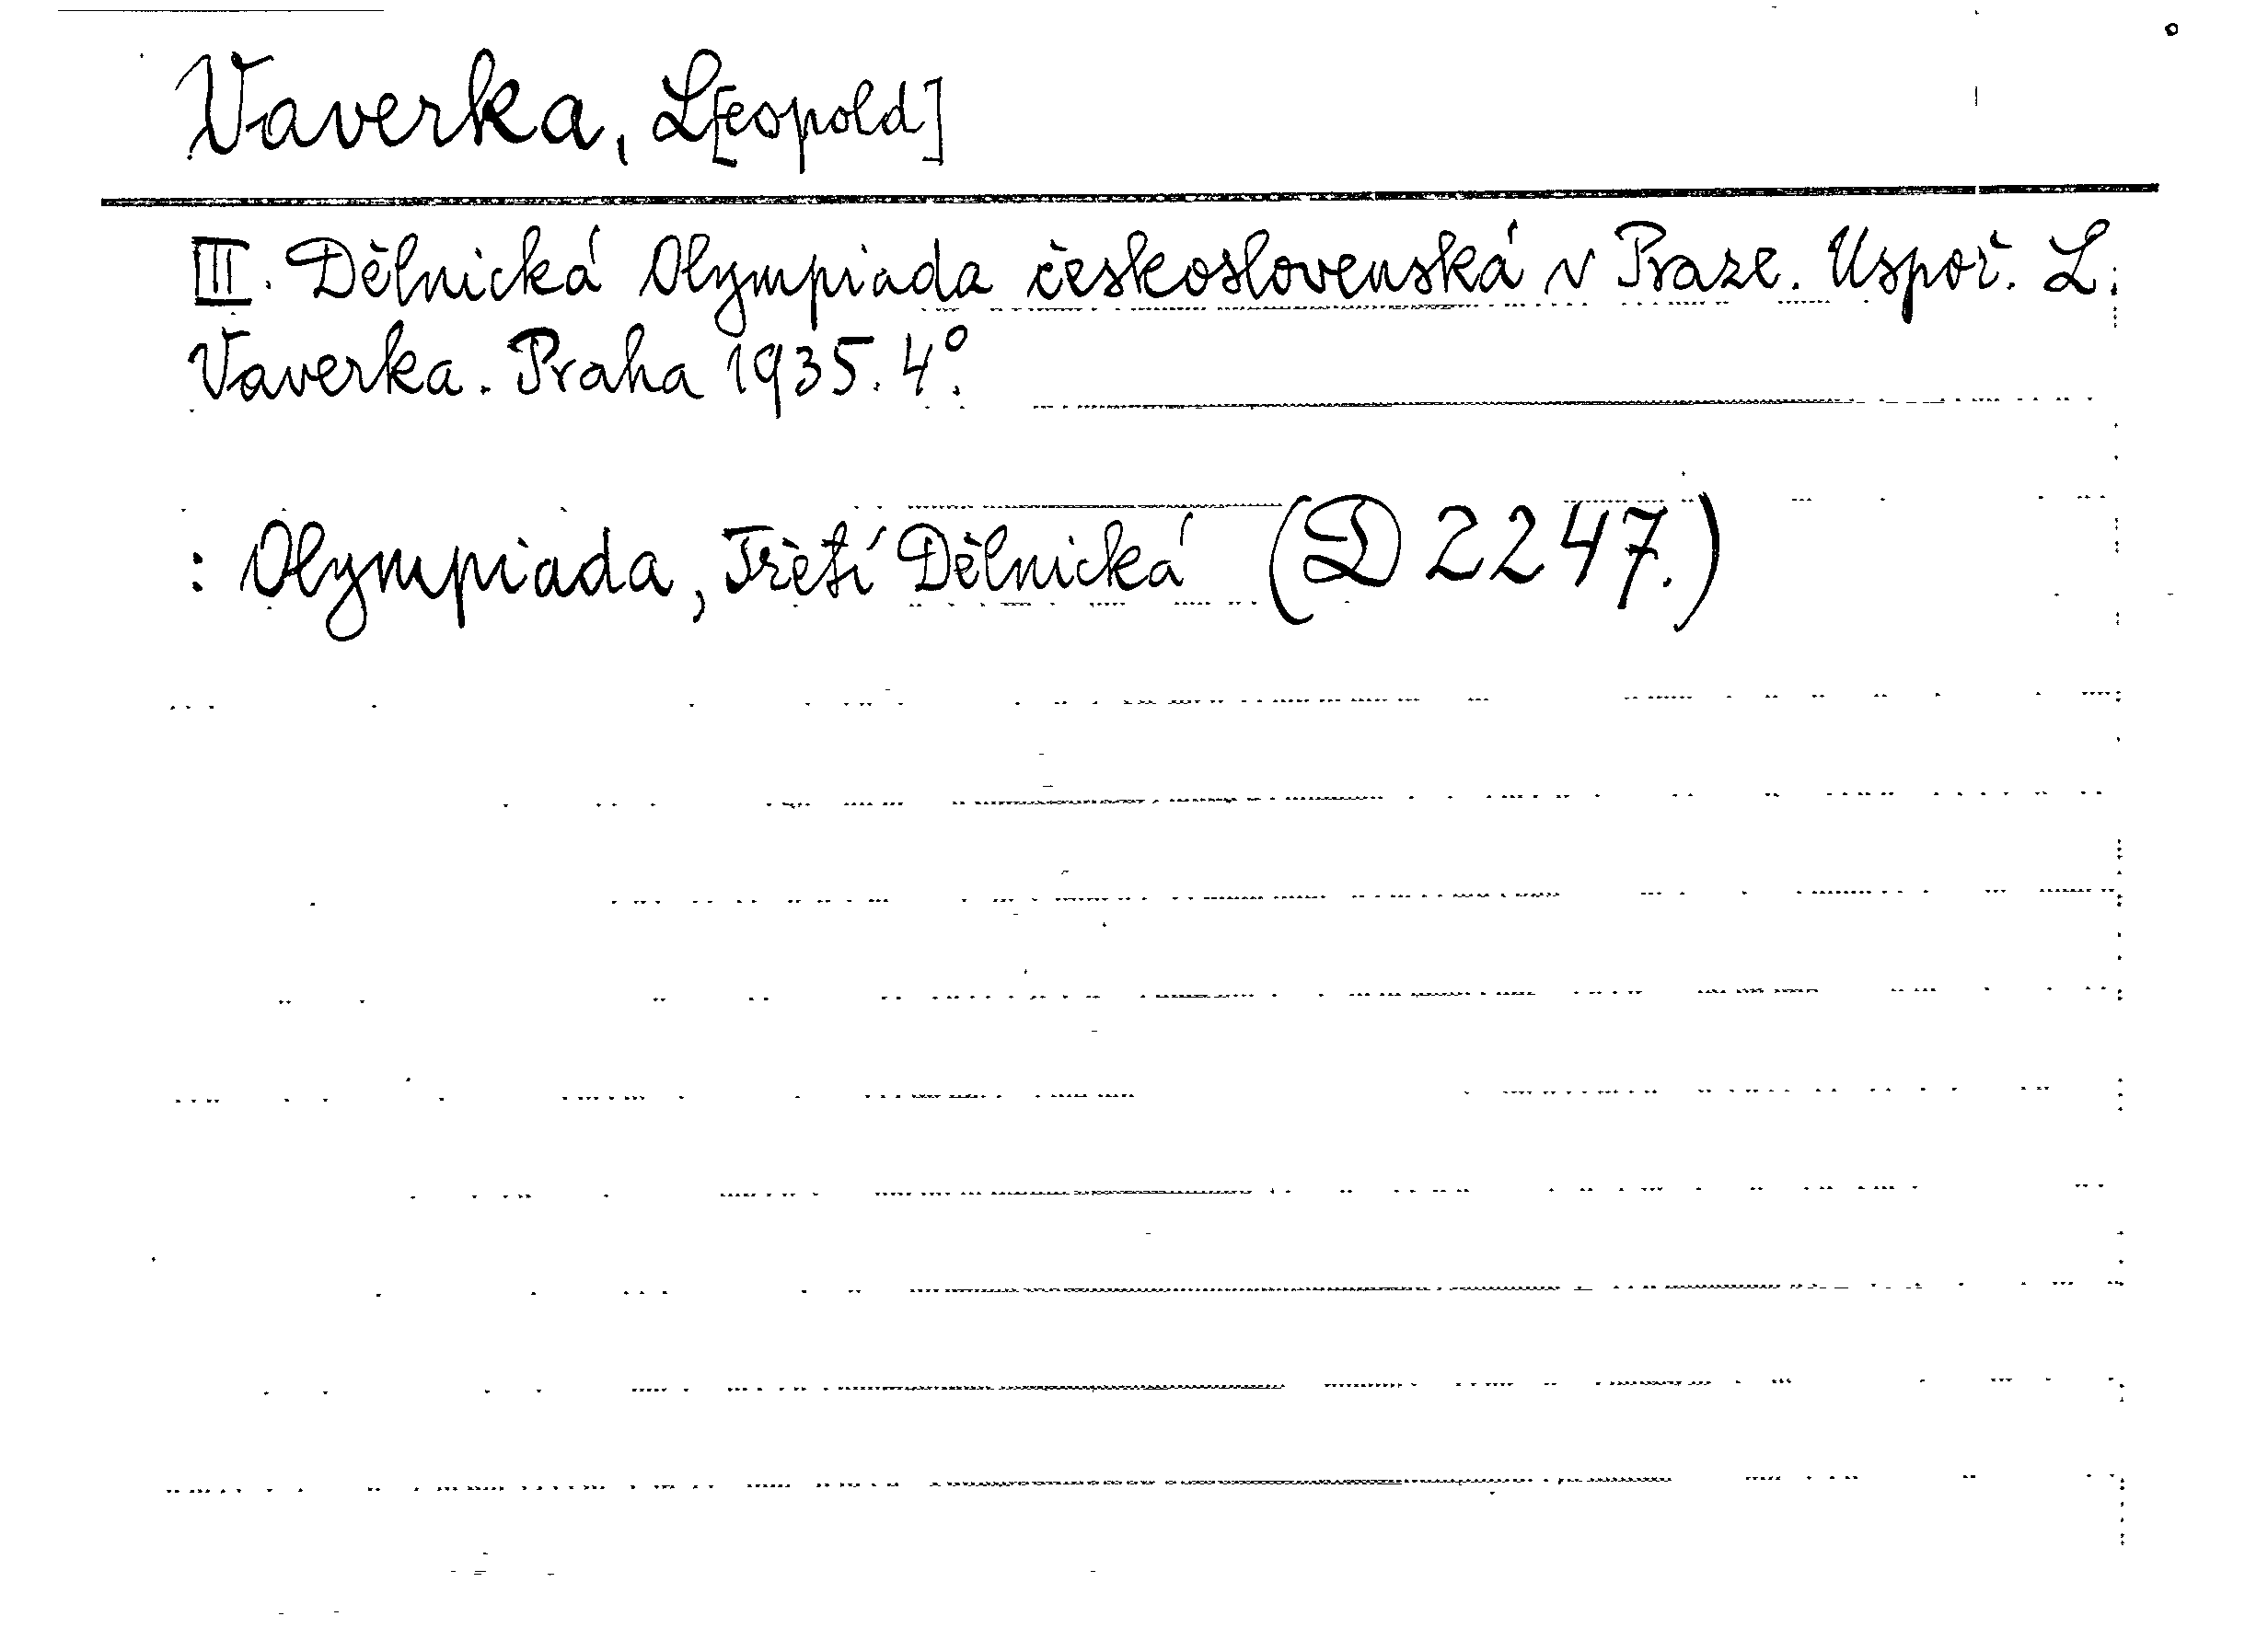 Vaverka, L[eopold]
III. Dělnická Olympiada československá v Praze. Uspoř. L.
Vaverka. Praha 1935. 4°.
: Olympiada, Třetí Dělnická (D 2247.)